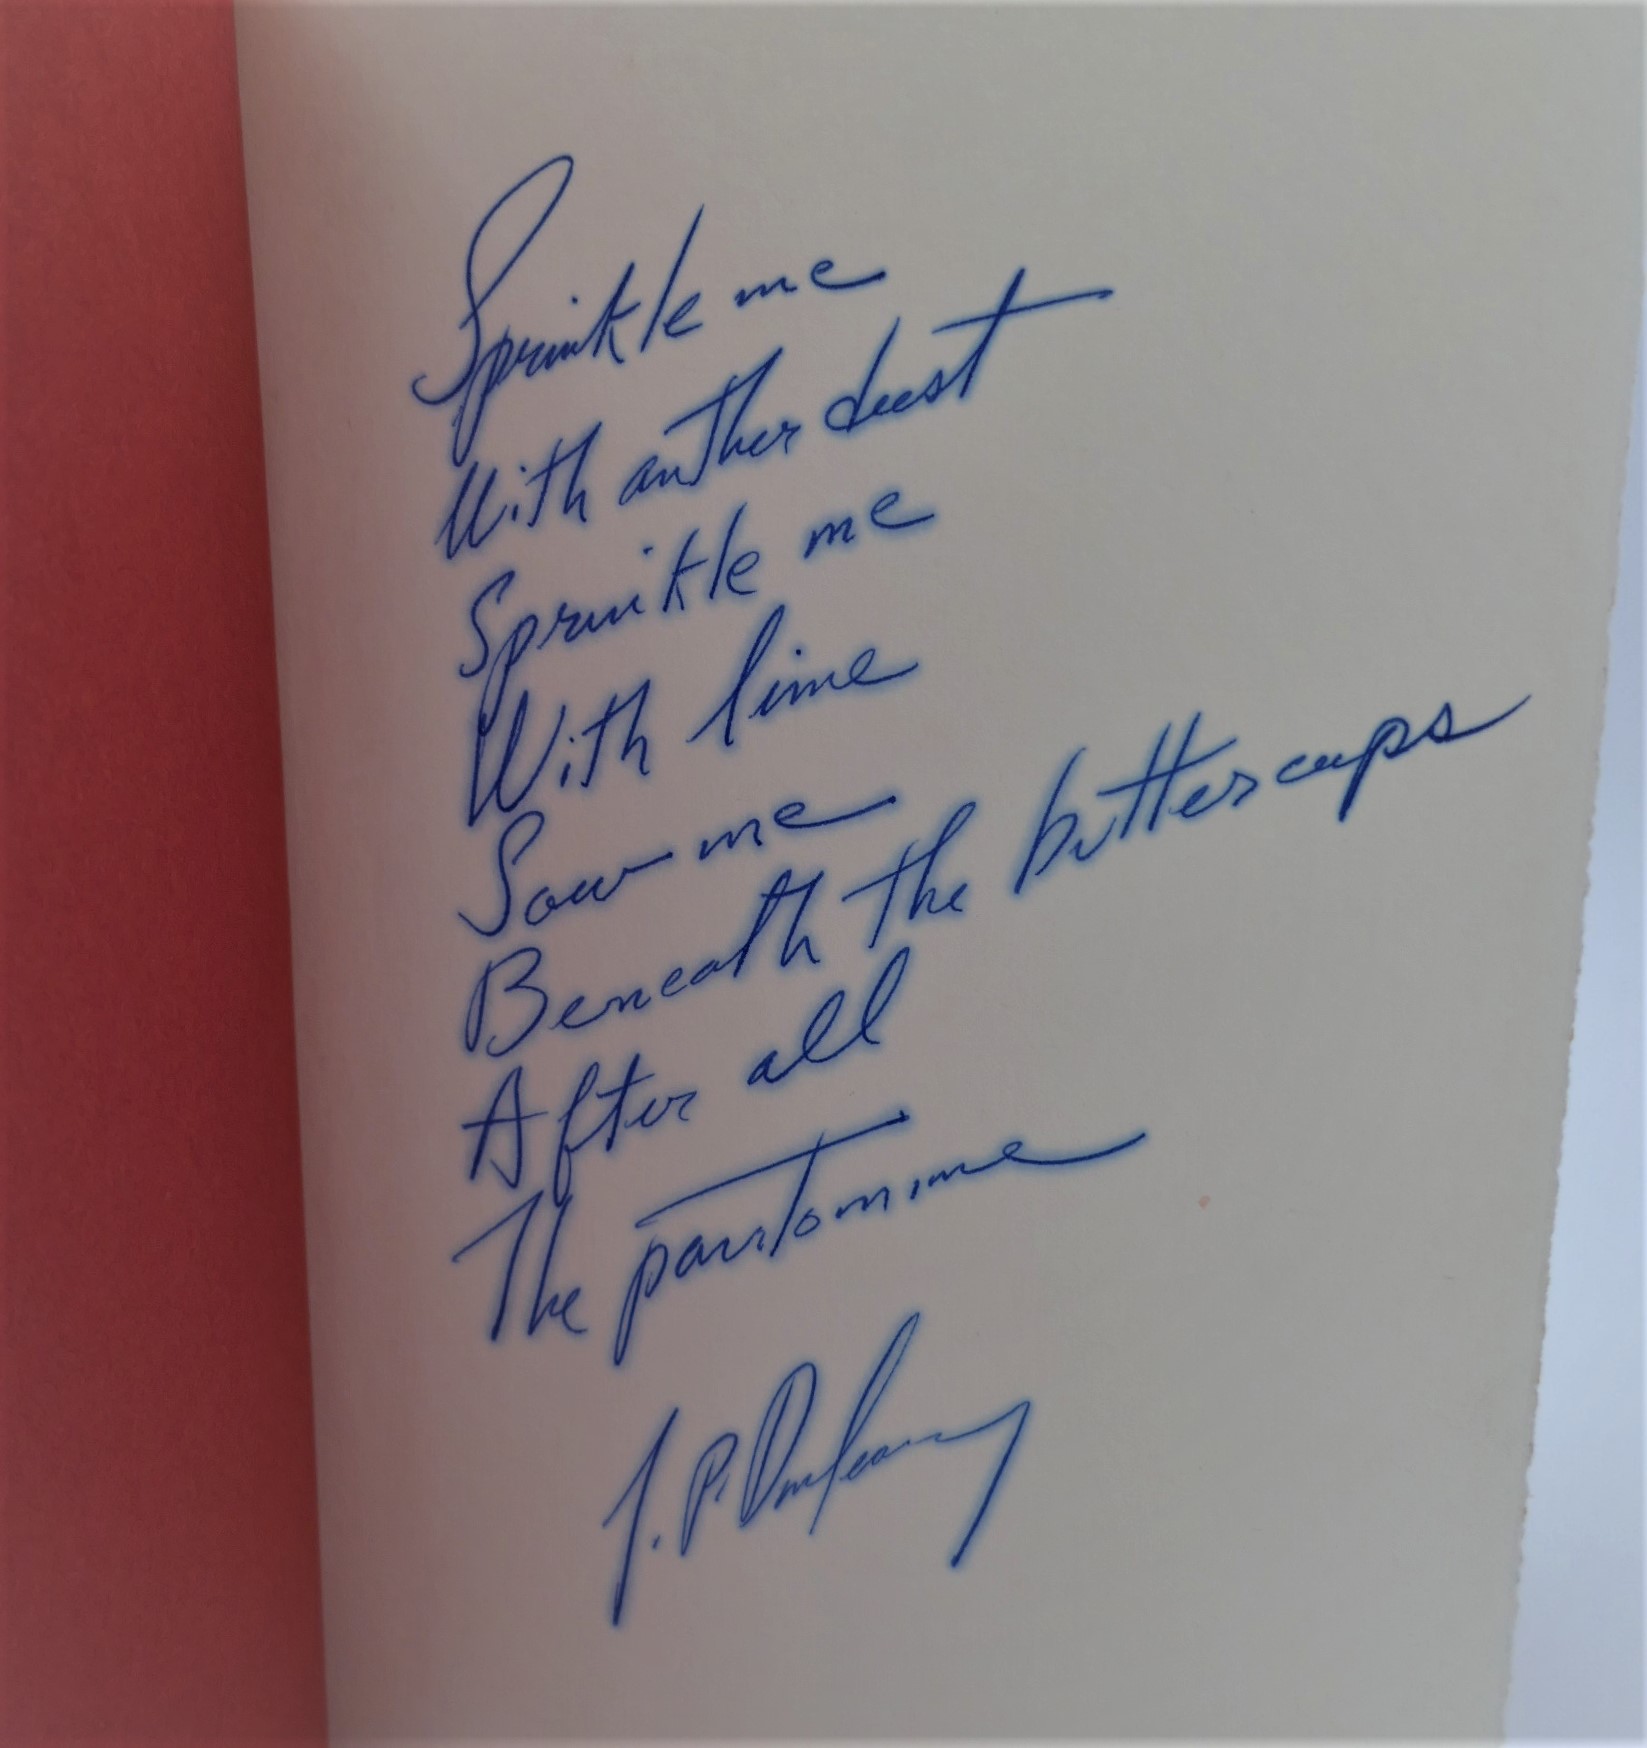 Sprinkle me
With anther dust
Sprinkle me
With lime
Sow me
Beneath the buttercups
After all
The pantomime
J. P. Donleavy